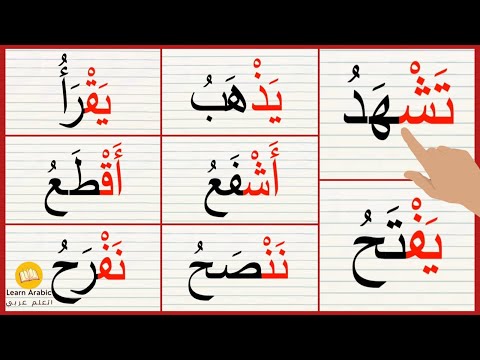 تَشْهَدُ
يَفْتَحُ
يَذْهَبُ
يَقْرَأُ
أَشْفَعُ
أَقْطَعُ
نَنْصَحُ
نَفْرَحُ
Learn Arabic
اتعلم عربي